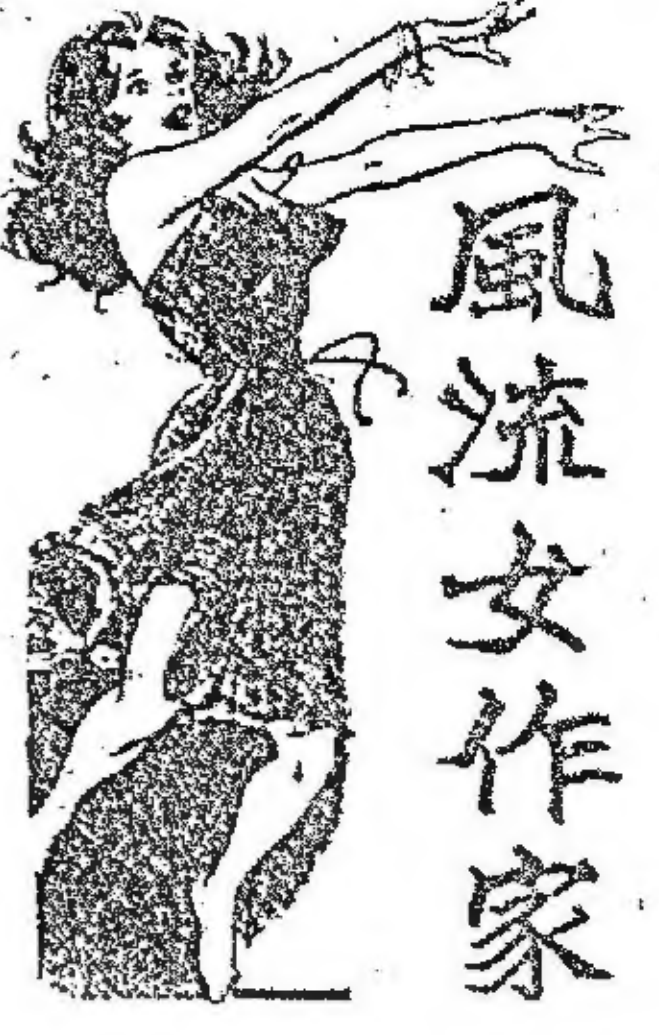 風流女作家